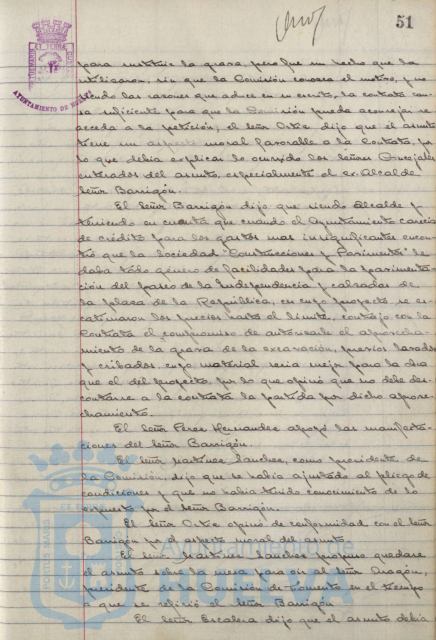 51
AYUNTAMIENTO DE HUELVA
para sustituir la grava, pero fue un hecho que la
utilizaron, sin que la Comisión conozca el motivo, y no
siendo las razones que aduce en su escrito, la contrata cau-
sa suficiente para que la Comisión pueda aconsejar se
acceda a la petición; el señor Ortiz dijo que el asunto
tiene un aspecto moral favorable a la Contrata, por
lo que debía explicar lo ocurrido los señores Concejales
enterados del asunto, especialmente el ex-Alcalde
señor Barrigón.
El señor Barrigón dijo que siendo Alcalde y
teniendo en cuenta que cuando el Ayuntamiento carecía
de crédito para los gastos mas insignificantes encon-
tró que la Sociedad "Construcciones y Pavimentos" le
daba todo género de facilidades para la pavimenta-
ción del paseo de la Independencia y calzadas de
la plaza de la República, en cuyo proyecto se es-
catimaron los precios hasta el límite, contrajo con la
Contrata el compromiso de autorizarle el aprovecha-
miento de la grava de la excavación, previos lavados
y cribados, cuyo material sería mejor para la obra
que el del proyecto, por lo que opinó que no debe des-
contarse a la contrata la partida por dicho aprove-
chamiento.
El señor Perez Hernandez apoyó las manifesta-
ciones del señor Barrigón.
El señor Martínez Sanchez, como presidente de
la Comisión, dijo que se había ajustado al pliego de
condiciones y que no había tenido conocimiento de lo
expuesto por el señor Barrigón.
El señor Ortiz opinó de conformidad con el señor
Barrigón por el aspecto moral del asunto.
El señor Martínez Sanchez propuso quedase
el asunto sobre la mesa para oir al señor Aragón,
presidente de la Comisión de Fomento en el tiempo
a que se refirió el señor Barrigón.
El señor Escalera dijo que el asunto debía
Ayuntamiento de
HUELVA